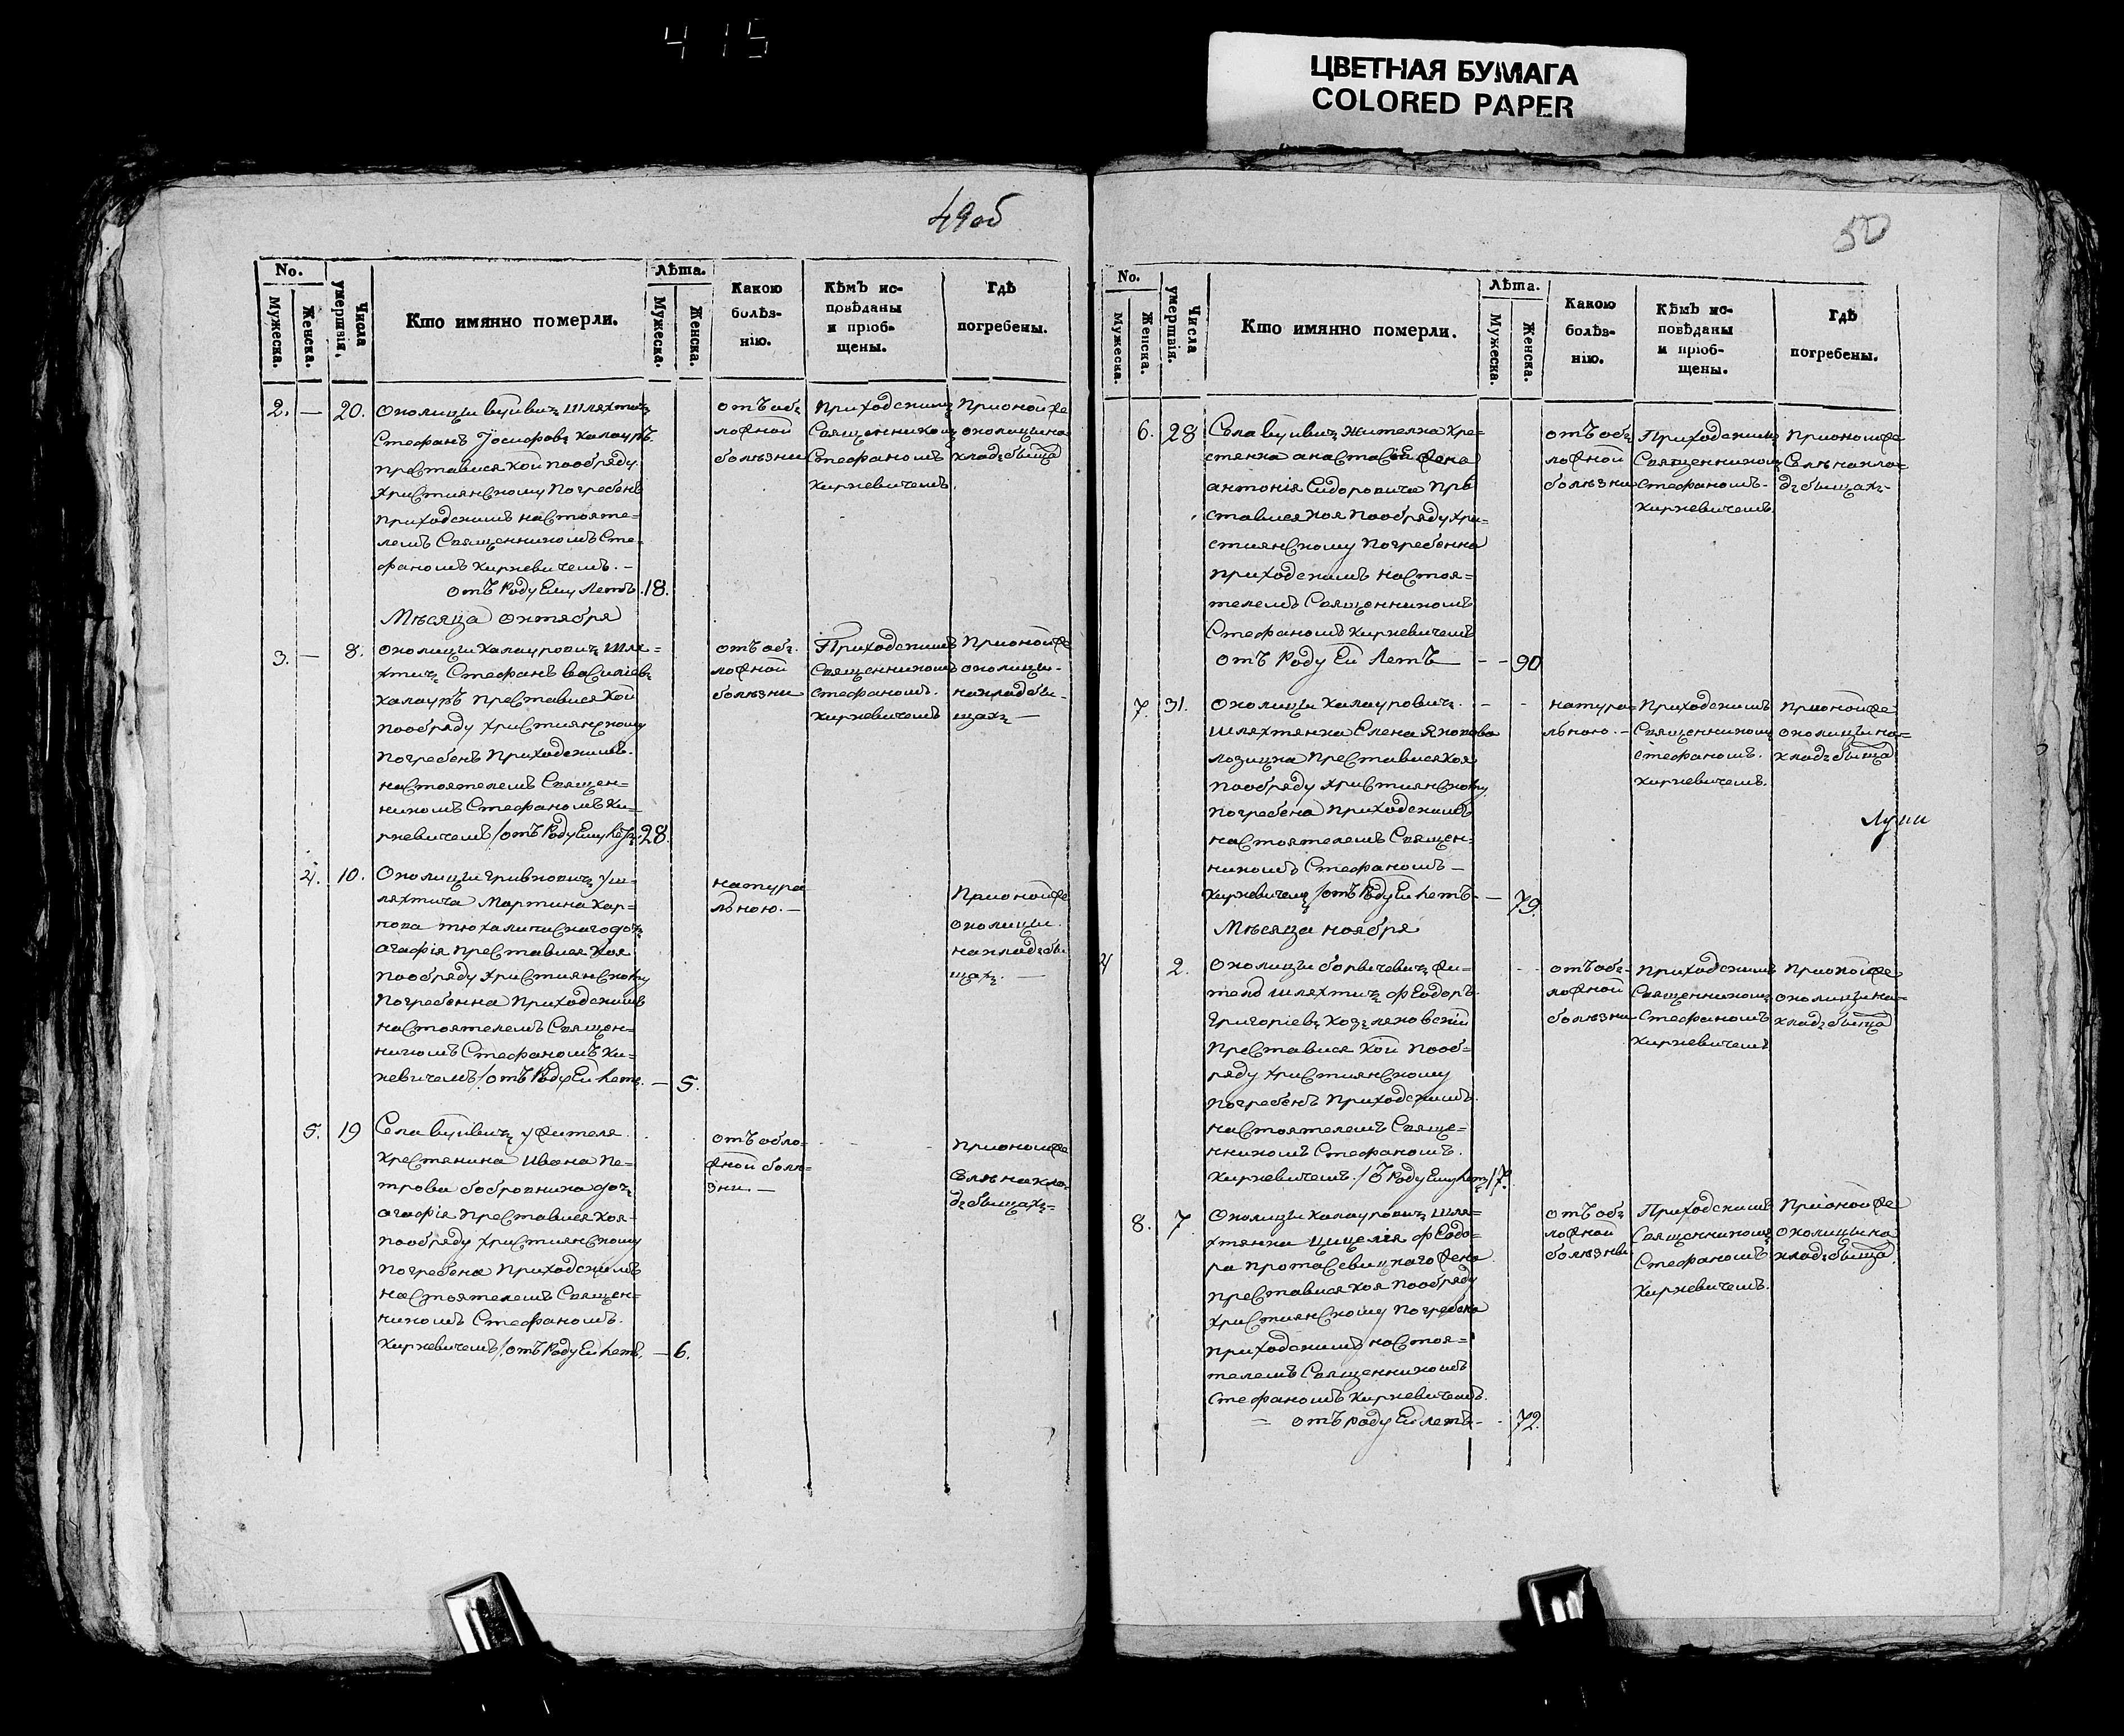 415
ЦВЕТНАЯ БУМАГА
COLORED PAPER
49об
No.
Мужеска.
Женска.
Числа умертвія.
Кто имянно померли.
Лѣта.
Мужеска.
Женска.
Какою
болѣз-
нію.
Кѣмъ ис-
повѣданы
и пріоб-
щены.
Гдѣ
погребены.
2. — 20. Околицы Шляхтич
Стефанъ Іосифовъ Калауръ
преставися кой пообряду
Християнскому Погребенъ
Приходскимъ настояте=
лемъ Священникомъ Сте-
фаномъ Кирневичемъ. –
отъ Роду Ему Летъ. 18.
отъ об
ложной
болѣзни
Приходскимъ
Священникомъ
Стефаномъ
Кирневичемъ.
При оной же
околицы на
кладбища
Мѣсяца Октября
3. — 8. Околицы Калаурович Шля=
хтич Стефанъ Василіев
Калауръ Преставися Кой
Пообряду Християнскому
Погребенъ Приходскимъ.
настоятелемъ Священ=
никомъ Стефаномъ Ки=
рневичемъ / отъ Роду Ему 28.
отъ об.
ложной
болѣзни
Приходскимъ
Священникомъ
Стефаномъ.
Кирневичемъ
При оной же
околицы -
на кладбы -
щахъ —
4. 10. Околицы Гривкович у Ш=
ляхтича Мартина Кар=
пова доч
агафія Преставися Коя
Пообряду Християнскому
Погребенна Приходскимъ
настоятелемъ Священ=
никомъ Стефаномъ Ки=
невичемъ / отъ Роду Ей Летъ. — 5.
натура
льною. —
При оной же
околицы.
на кладбы
щах. —
5. 19 Села у жителя
Крестянина Ивана Пе=
трова Бобровника доч
агафія Преставися Коя=
пообряду Християнскому
Погребена Приходскимъ
настоятелемъ Священ=
никомъ Стефаномъ.
Кирневичемъ / отъ Роду Ей Летъ. — 6.
отъ обло=
жной болѣ=
зни. —
При ономъ же
Селѣ на кла=
дбыщахъ=
50
No.
Мужеска.
Женска.
Числа умертвія.
Кто имянно померли.
Лѣта.
Мужеска.
Женска.
Какою
болѣз-
нію.
Кѣмъ ис-
повѣданы
и пріоб-
щены.
Гдѣ
погребены.
6. 28 Села жителка Кре=
стянка анастасія жена
антонія Сидоровича Прѣ
ставися коя Пообряду Хри=
стиянскому Погребенна
Приходскимъ настоя=
телемъ Священникомъ
Стефаномъ Кирневичемъ
отъ Роду Ей Летъ — - - 90
отъ об
ложной
болѣзни
Приходскимъ
Священникомъ
Стефаномъ-
Кирневичемъ.
При ономъ же
Селѣ на кла=
дбыщахъ-
7. 31. Околицы Калаурович. - -
Шляхтянка Елена Якопова
Преставися Коя
Пообряду Християнскому
Погребена Приходскимъ
настоятелемъ Священ=
никомъ Стефаномъ —
Кирневичемъ / отъ Роду Ей Летъ. — 79.
натура=
льною. -
Приходскимъ
Священникомъ
Стефаномъ.
Кирневичемъ.
При оной же
околицы на=
кладбыща
Мѣсяца ноября
4 2. Околицы жи=
тель Шляхтич Феодоръ.
Григоріев
Преставися Кой Пооб=
ряду Християнскому
Погребенъ Приходскимъ.
настоятелемъ Свяще=
нникомъ Стефаномъ.
Кирневичемъ. / Роду Ему Летъ 17.
отъ об=
ложной
болѣзни
Приходскимъ
Священникомъ
Стефаномъ
Кирневичемъ
При оной же
околицы на=
кладбыща
8. 7 Околицы Калаурович Шля=
хтянка Цицелія Феодо=
ра жена
Преставися Коя Пообряду
Християнскому Погребена
Приходскимъ настоя=
телемъ Священникомъ
Стефаномъ Кирневичемъ.
= отъ роду Ей летъ - - 72.
отъ об
ложной
болѣзни
Приходскимъ
Священникомъ
Стефаномъ
Кирневичемъ.
При оной же
околицы на
кладбыща